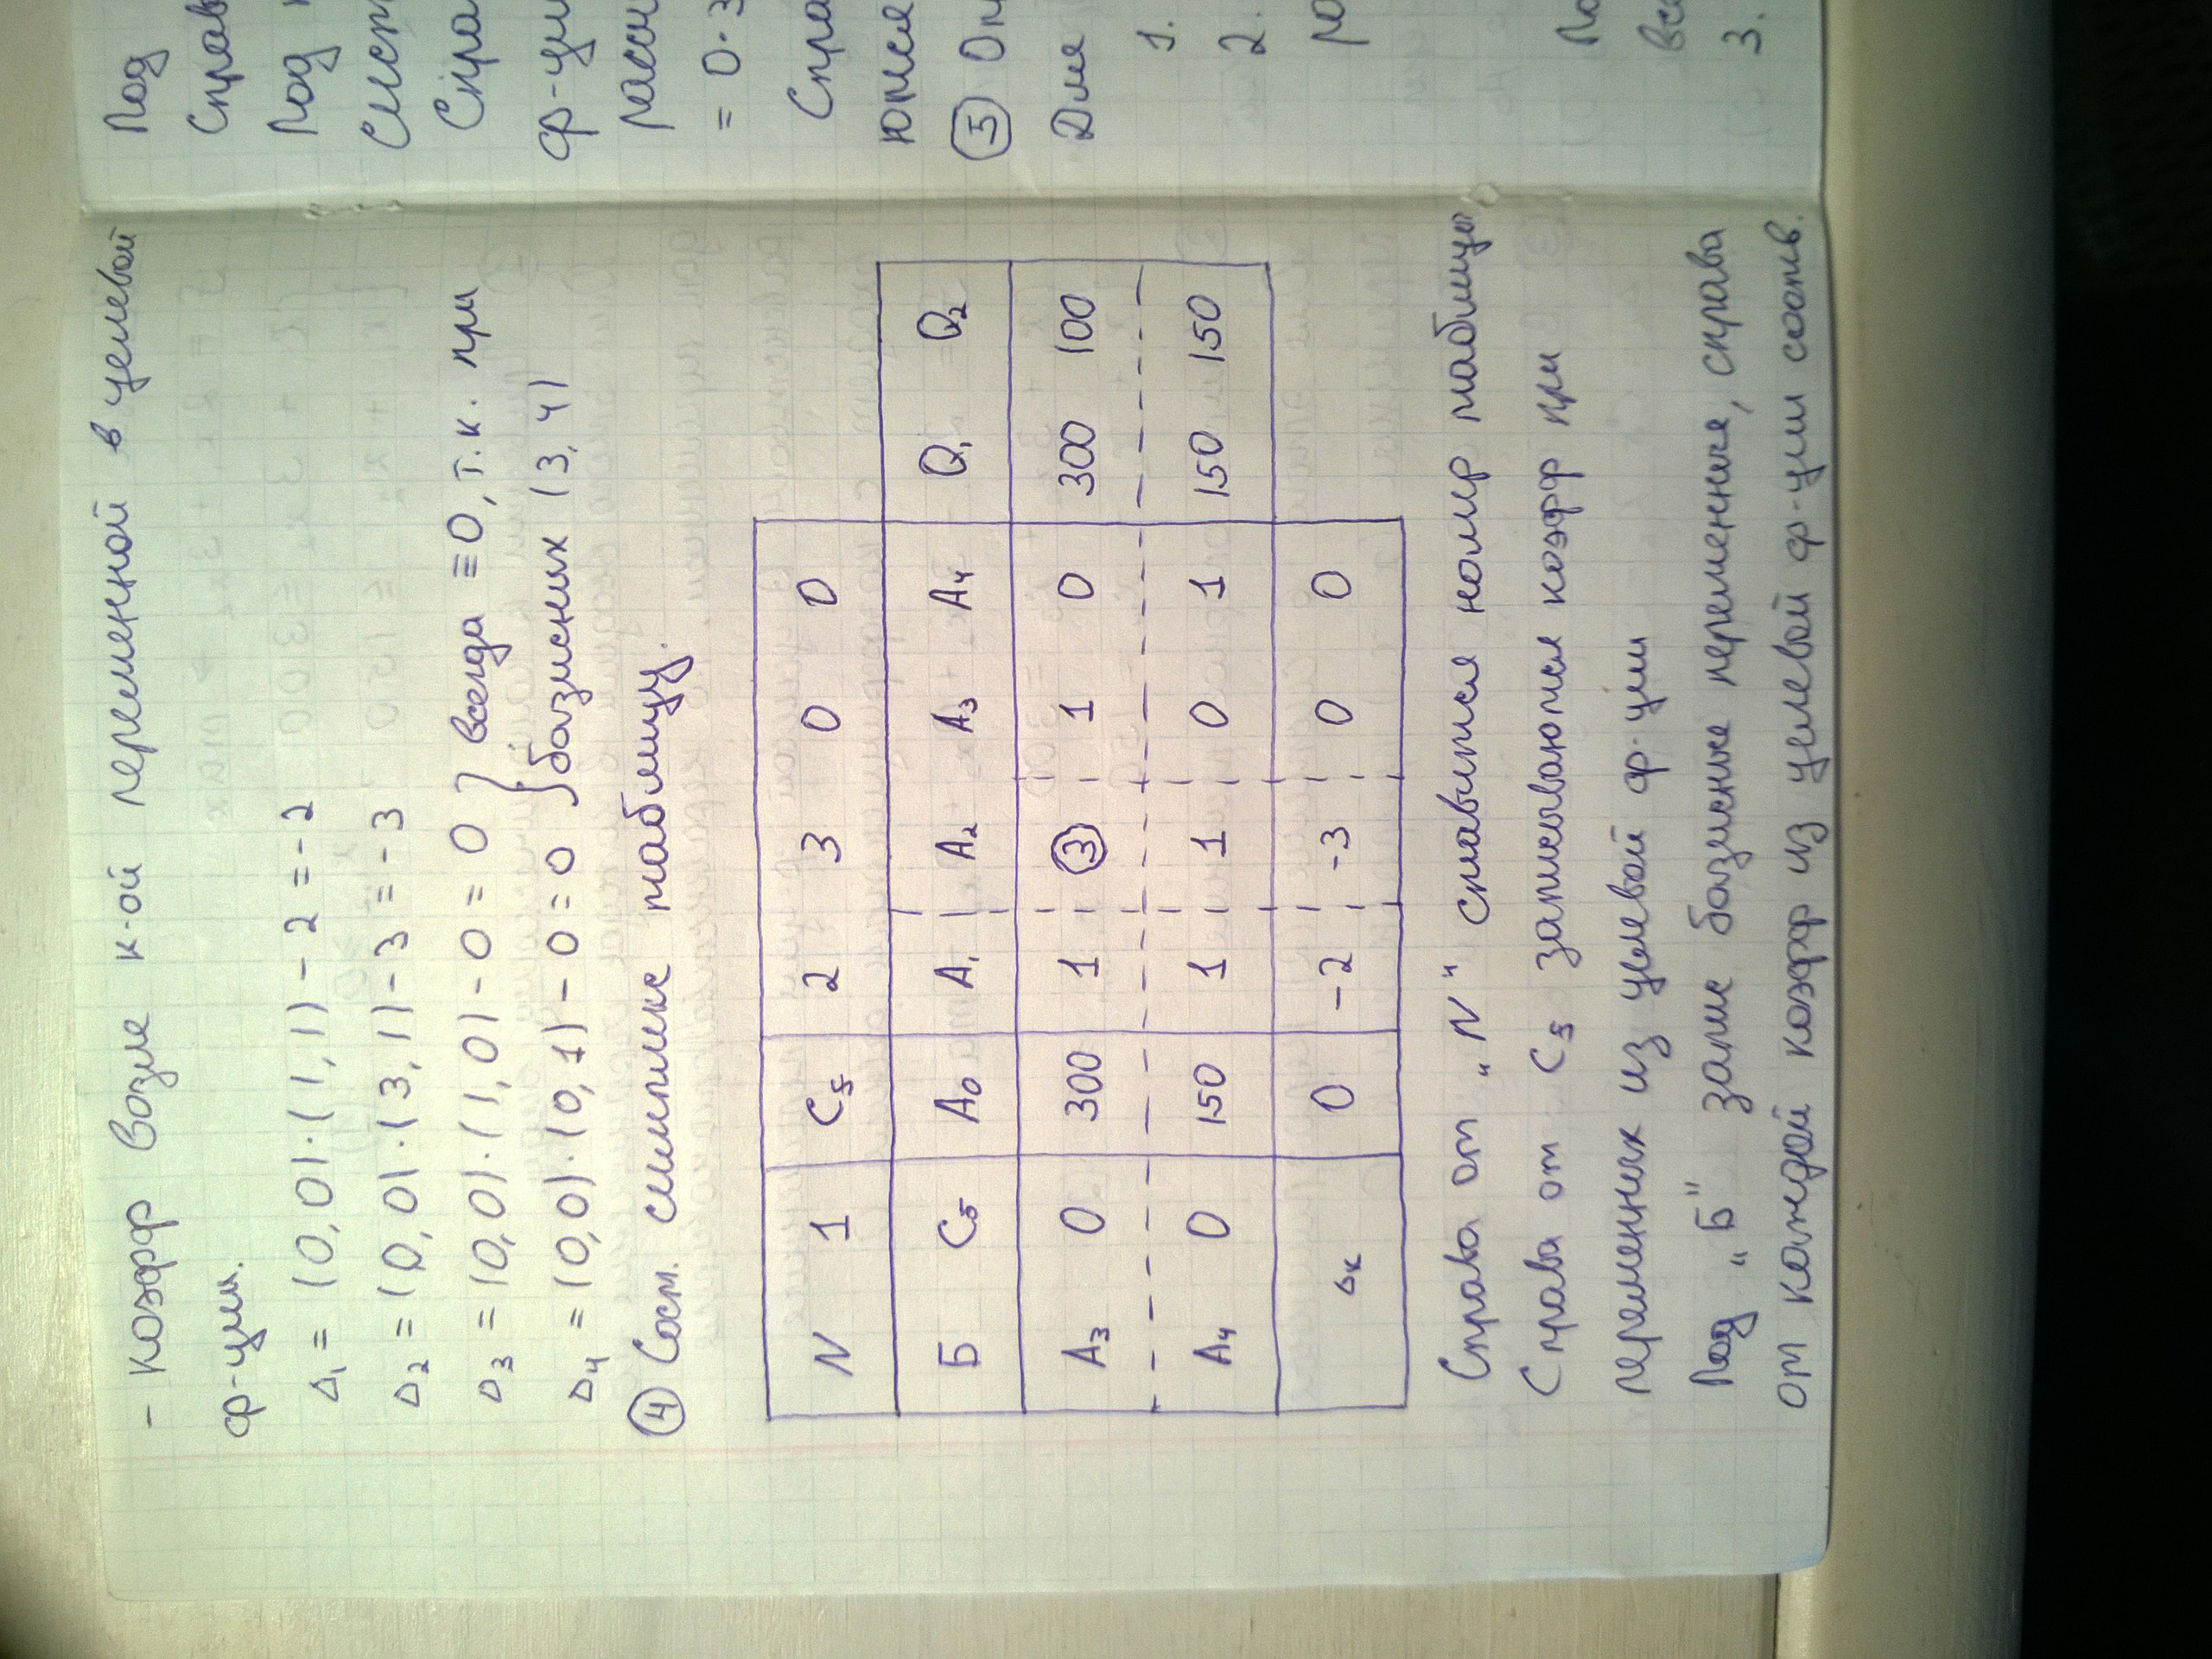 - коэфф возле к-ой переменной в целевой
ф-ции.
Δ₁ = (0,0)·(1,1) - 2 = -2
Δ₂ = (0,0)·(3,1) - 3 = -3
Δ₃ = (0,0)·(1,0) - 0 = 0 } всегда ≡0, т.к. при
Δ₄ = (0,0)·(0,1) - 0 = 0 } базисных (3,4)
④ Сост. симплекс таблицу.
N 1 C₅ 2 3 0 0
Б C₅ A₀ A₁ A₂ A₃ A₄ Q₁ Q₂
A₃ 0 300 1 ③ 1 0 300 100
A₄ 0 150 1 1 0 1 150 150
Δₖ 0 -2 -3 0 0
Справа от „N“ ставится номер таблицы
Справа от C₅ записываются коэфф при
переменных из целевой ф-ции
Под „Б“ запис базисные переменные, справа
от каждой коэфф из целевой ф-ции соотв.
Под
Справ
Под
сист
Спра
ф-ци
рассч
= 0·3
Спра
ются
⑤ Оп
Для
1.
2.
ра
По
все
3.